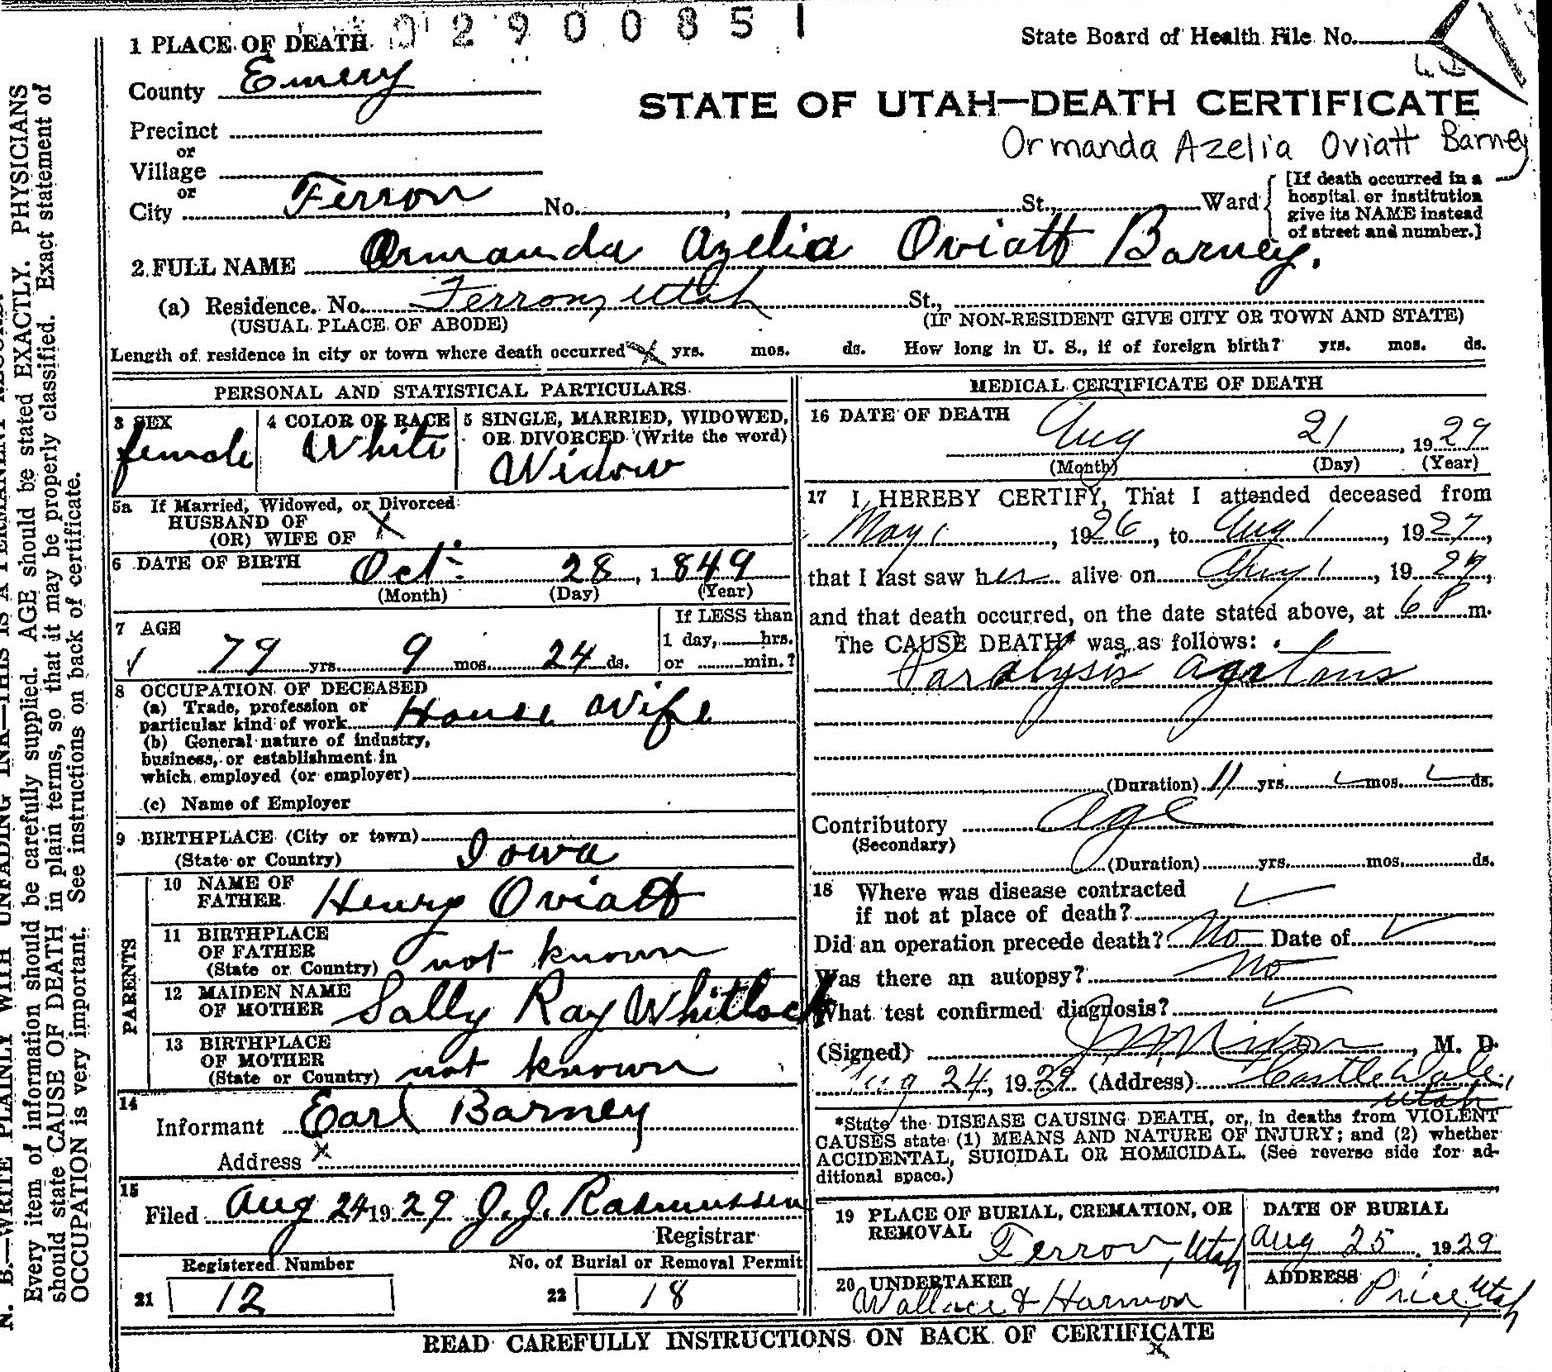 0290085 1
1 PLACE OF DEATH
State Board of Health File No.
County Emery
STATE OF UTAH—DEATH CERTIFICATE
Precinct
Ormanda Azelia Oviatt Barney
or
Village
or
City Ferron No. , St., Ward
[If death occurred in a
hospital or institution
give its NAME instead
of street and number.]
2 FULL NAME Ormanda Azelia Oviatt Barney.
(a) Residence. No. Ferron, Utah St.,
(USUAL PLACE OF ABODE) (IF NON-RESIDENT GIVE CITY OR TOWN AND STATE)
Length of residence in city or town where death occurred X yrs. mos. ds. How long in U. S., if of foreign birth? yrs. mos. ds.
PERSONAL AND STATISTICAL PARTICULARS
3 SEX
female
4 COLOR OR RACE
White
5 SINGLE, MARRIED, WIDOWED,
OR DIVORCED (Write the word)
Widow
5a If Married, Widowed, or Divorced
HUSBAND OF
(OR) WIFE OF X
6 DATE OF BIRTH Oct. 28, 1849
(Month) (Day) (Year)
7 AGE
79 yrs. 9 mos. 24 ds.
If LESS than
1 day, hrs.
or min.?
8 OCCUPATION OF DECEASED
(a) Trade, profession or
particular kind of work House Wife
(b) General nature of industry,
business, or establishment in
which employed (or employer)
(c) Name of Employer
9 BIRTHPLACE (City or town)
(State or Country) Iowa
PARENTS
10 NAME OF
FATHER Henry Oviatt
11 BIRTHPLACE
OF FATHER
(State or Country) not known
12 MAIDEN NAME
OF MOTHER Sally Ray Whitlock
13 BIRTHPLACE
OF MOTHER
(State or Country) not known
14
Informant Earl Barney
Address X
15
Filed Aug 24 1929 J. J. Rasmussen
Registrar
Registered Number No. of Burial or Removal Permit
21 12 22 18
MEDICAL CERTIFICATE OF DEATH
16 DATE OF DEATH
Aug 21, 1929
(Month) (Day) (Year)
17 I HEREBY CERTIFY, That I attended deceased from
May 1, 1926, to Aug 1, 1927,
that I last saw her alive on Aug 1, 1929,
and that death occurred, on the date stated above, at 6 P m.
The CAUSE DEATH* was as follows:
Paralysis agitans
(Duration) 11 yrs. mos. ds.
Contributory Age
(Secondary)
(Duration) yrs. mos. ds.
18 Where was disease contracted
if not at place of death?
Did an operation precede death? No Date of
Was there an autopsy? No
What test confirmed diagnosis?
(Signed) J M Nixon, M. D.
Aug 24, 1929 (Address) Castle Dale,
Utah
*State the DISEASE CAUSING DEATH, or, in deaths from VIOLENT
CAUSES state (1) MEANS AND NATURE OF INJURY; and (2) whether
ACCIDENTAL, SUICIDAL OR HOMICIDAL. (See reverse side for ad-
ditional space.)
19 PLACE OF BURIAL, CREMATION, OR
REMOVAL
Ferron, Utah
DATE OF BURIAL
Aug 25, 1929
20 UNDERTAKER
Wallace & Harmon
ADDRESS
Price, Utah
READ CAREFULLY INSTRUCTIONS ON BACK OF CERTIFICATE
N. B.—WRITE PLAINLY WITH UNFADING INK—THIS IS A PERMANENT
Every item of information should be carefully supplied. AGE should be stated EXACTLY. PHYSICIANS
should state CAUSE OF DEATH in plain terms, so that it may be properly classified. Exact statement of
OCCUPATION is very important. See instructions on back of certificate.